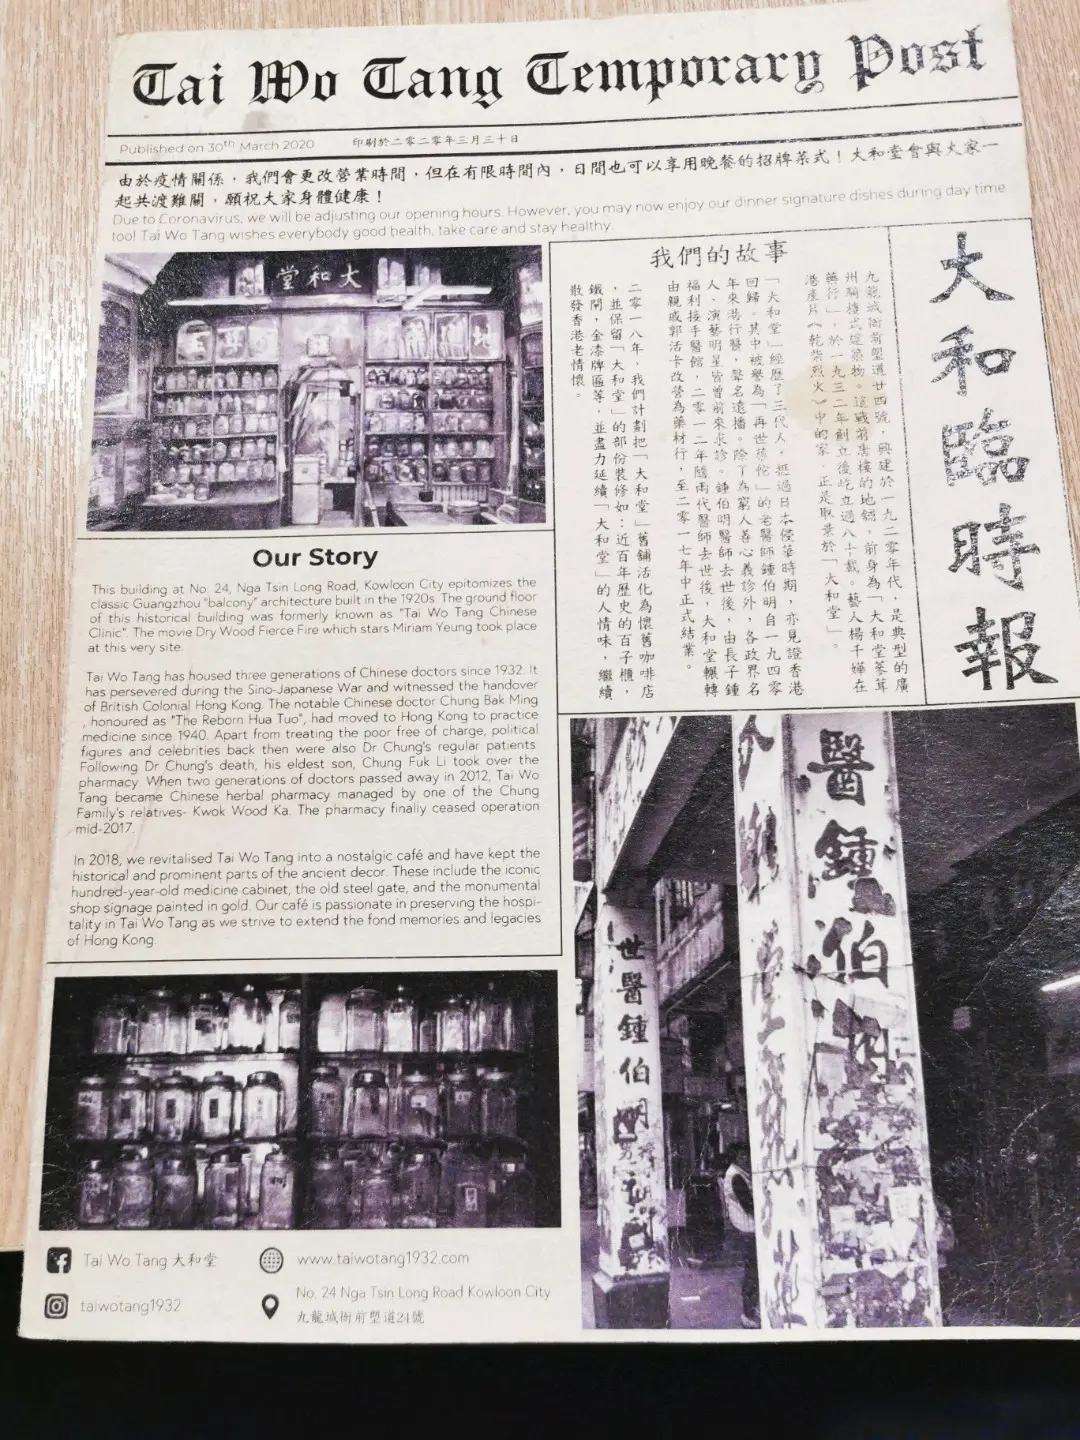 Tai Wo Tang Temporary Post
Published on 30th March 2020 印刷於二零二零年三月三十日
由於疫情關係，我們會更改營業時間，但在有限時間內，日間也可以享用晚餐的招牌菜式！大和堂會與大家一
起共渡難關，願祝大家身體健康！
Due to Coronavirus, we will be adjusting our opening hours. However, you may now enjoy our dinner signature dishes during day time
too! Tai Wo Tang wishes everybody good health, take care and stay healthy.
大和臨時報
我們的故事
九龍城衙前塱道廿四號，興建於一九二零年代，是典型的廣
州騎樓式建築物。這戰前唐樓的地舖，前身為「大和堂蔘茸
藥行」，於一九三二年創立後屹立過八十載。藝人楊千嬅在
港產片《乾柴烈火》中的家，正是取景於「大和堂」。
「大和堂」經歷了三代人，捱過日本侵華時期，亦見證香港
回歸。其中被譽為「再世華佗」的老醫師鍾伯明自一九四零
年來港行醫，聲名遠播。除了為窮人善心義診外，各政界名
人、演藝明星皆曾前來求診。鍾伯明醫師去世後，由長子鍾
福利接手醫館，二零一二年隨兩代醫師去世後，大和堂輾轉
由親戚郭活卡改營為藥材行，至二零一七年中正式結業。
二零一八年，我們計劃把「大和堂」舊鋪活化為懷舊咖啡店
，並保留「大和堂」的部份裝修如：近百年歷史的百子櫃，
鐵閘，金漆牌匾等，並盡力延續「大和堂」的人情味，繼續
散發香港老情懷。
堂和大
Our Story
This building at No. 24, Nga Tsin Long Road, Kowloon City epitomizes the
classic Guangzhou "balcony" architecture built in the 1920s. The ground floor
of this historical building was formerly known as "Tai Wo Tang Chinese
Clinic". The movie Dry Wood Fierce Fire which stars Miriam Yeung took place
at this very site.
Tai Wo Tang has housed three generations of Chinese doctors since 1932. It
has persevered during the Sino-Japanese War and witnessed the handover
of British Colonial Hong Kong. The notable Chinese doctor Chung Bak Ming
, honoured as "The Reborn Hua Tuo", had moved to Hong Kong to practice
medicine since 1940. Apart from treating the poor free of charge, political
figures and celebrities back then were also Dr Chung's regular patients.
Following Dr Chung's death, his eldest son, Chung Fuk Li took over the
pharmacy. When two generations of doctors passed away in 2012, Tai Wo
Tang became Chinese herbal pharmacy managed by one of the Chung
Family's relatives- Kwok Wood Ka. The pharmacy finally ceased operation
mid-2017.
In 2018, we revitalised Tai Wo Tang into a nostalgic café and have kept the
historical and prominent parts of the ancient decor. These include the iconic
hundred-year-old medicine cabinet, the old steel gate, and the monumental
shop signage painted in gold. Our café is passionate in preserving the hospi-
tality in Tai Wo Tang as we strive to extend the fond memories and legacies
of Hong Kong.
世醫鍾伯明
醫鍾伯
Tai Wo Tang 大和堂
www.taiwotang1932.com
taiwotang1932
No. 24 Nga Tsin Long Road Kowloon City
九龍城衙前塱道24號